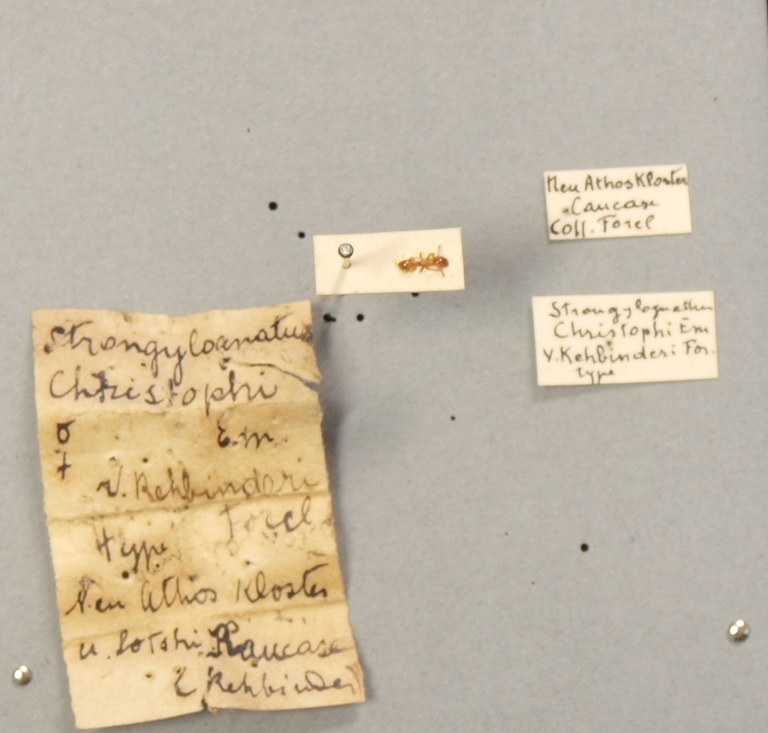 Neu Athos Kloster
Caucase
Coll. Forel
Strongylognathus
Christophi Em
v. Rehbinderi For.
type
Strongylognatus
Christophi
Em.
v. Rehbinderi
Forel
type
Neu Athos Kloster
u. Sotshi Kaucase
(Rehbinder)